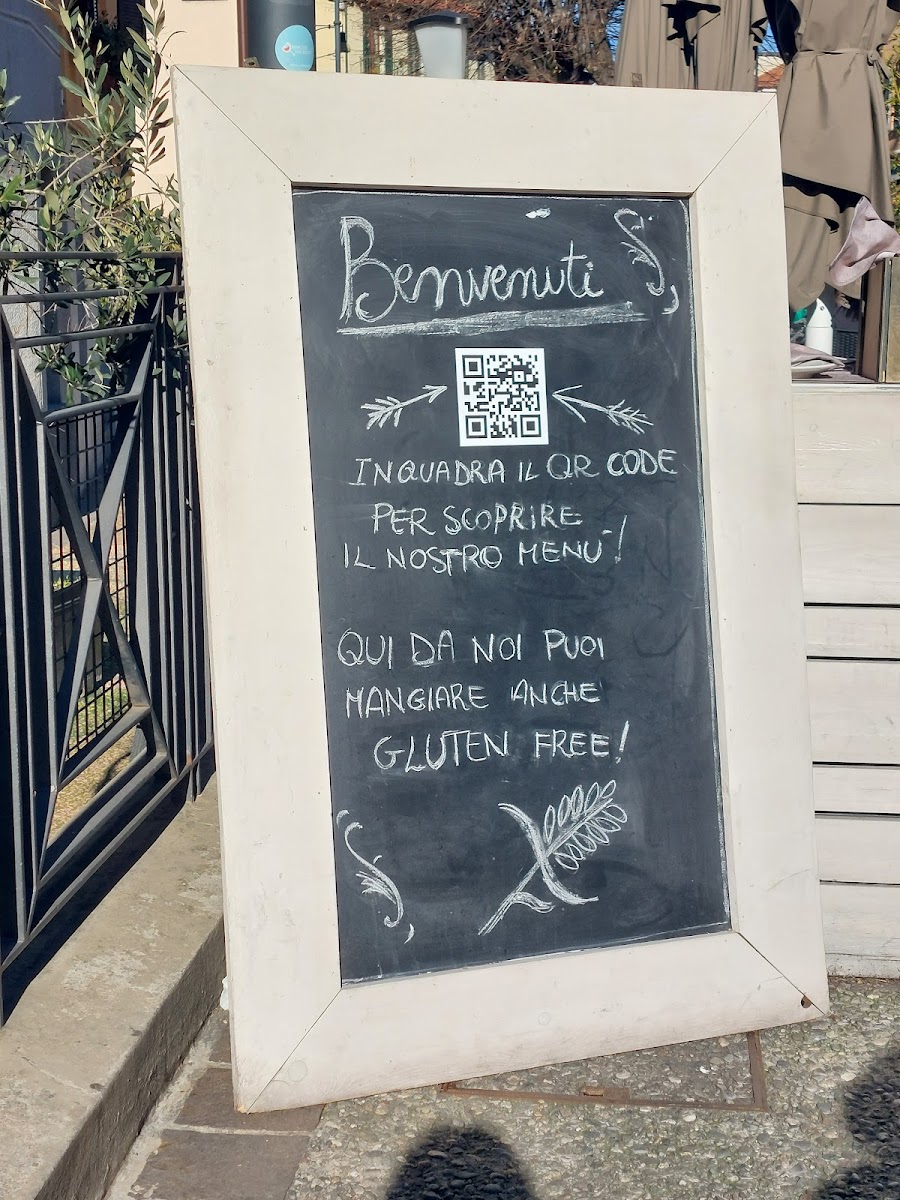 Benvenuti
INQUADRA IL QR CODE
PER SCOPRIRE
IL NOSTRO MENU'!
QUI DA NOI PUOI
MANGIARE ANCHE
GLUTEN FREE!